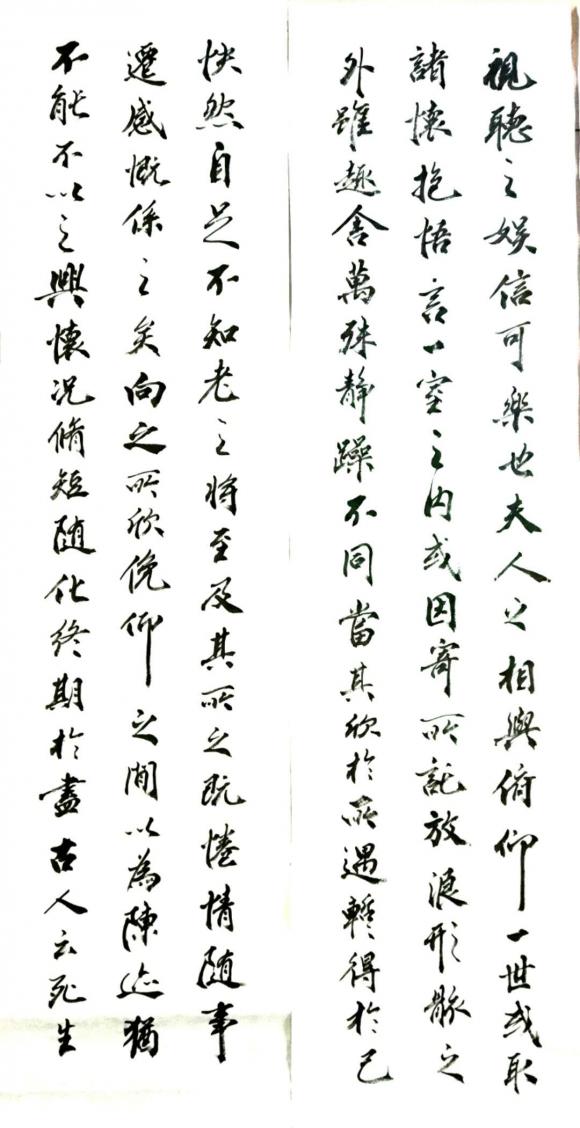 視聽之娛信可樂也夫人之相與俯仰一世或取
諸懷抱悟言一室之內或因寄所託放浪形骸之
外雖趣舍萬殊靜躁不同當其欣於所遇暫得於己
怏然自足不知老之將至及其所之既惓情隨事
遷感慨係之矣向之所欣俛仰之間以為陳迹猶
不能不以之興懷況脩短隨化終期於盡古人云死生